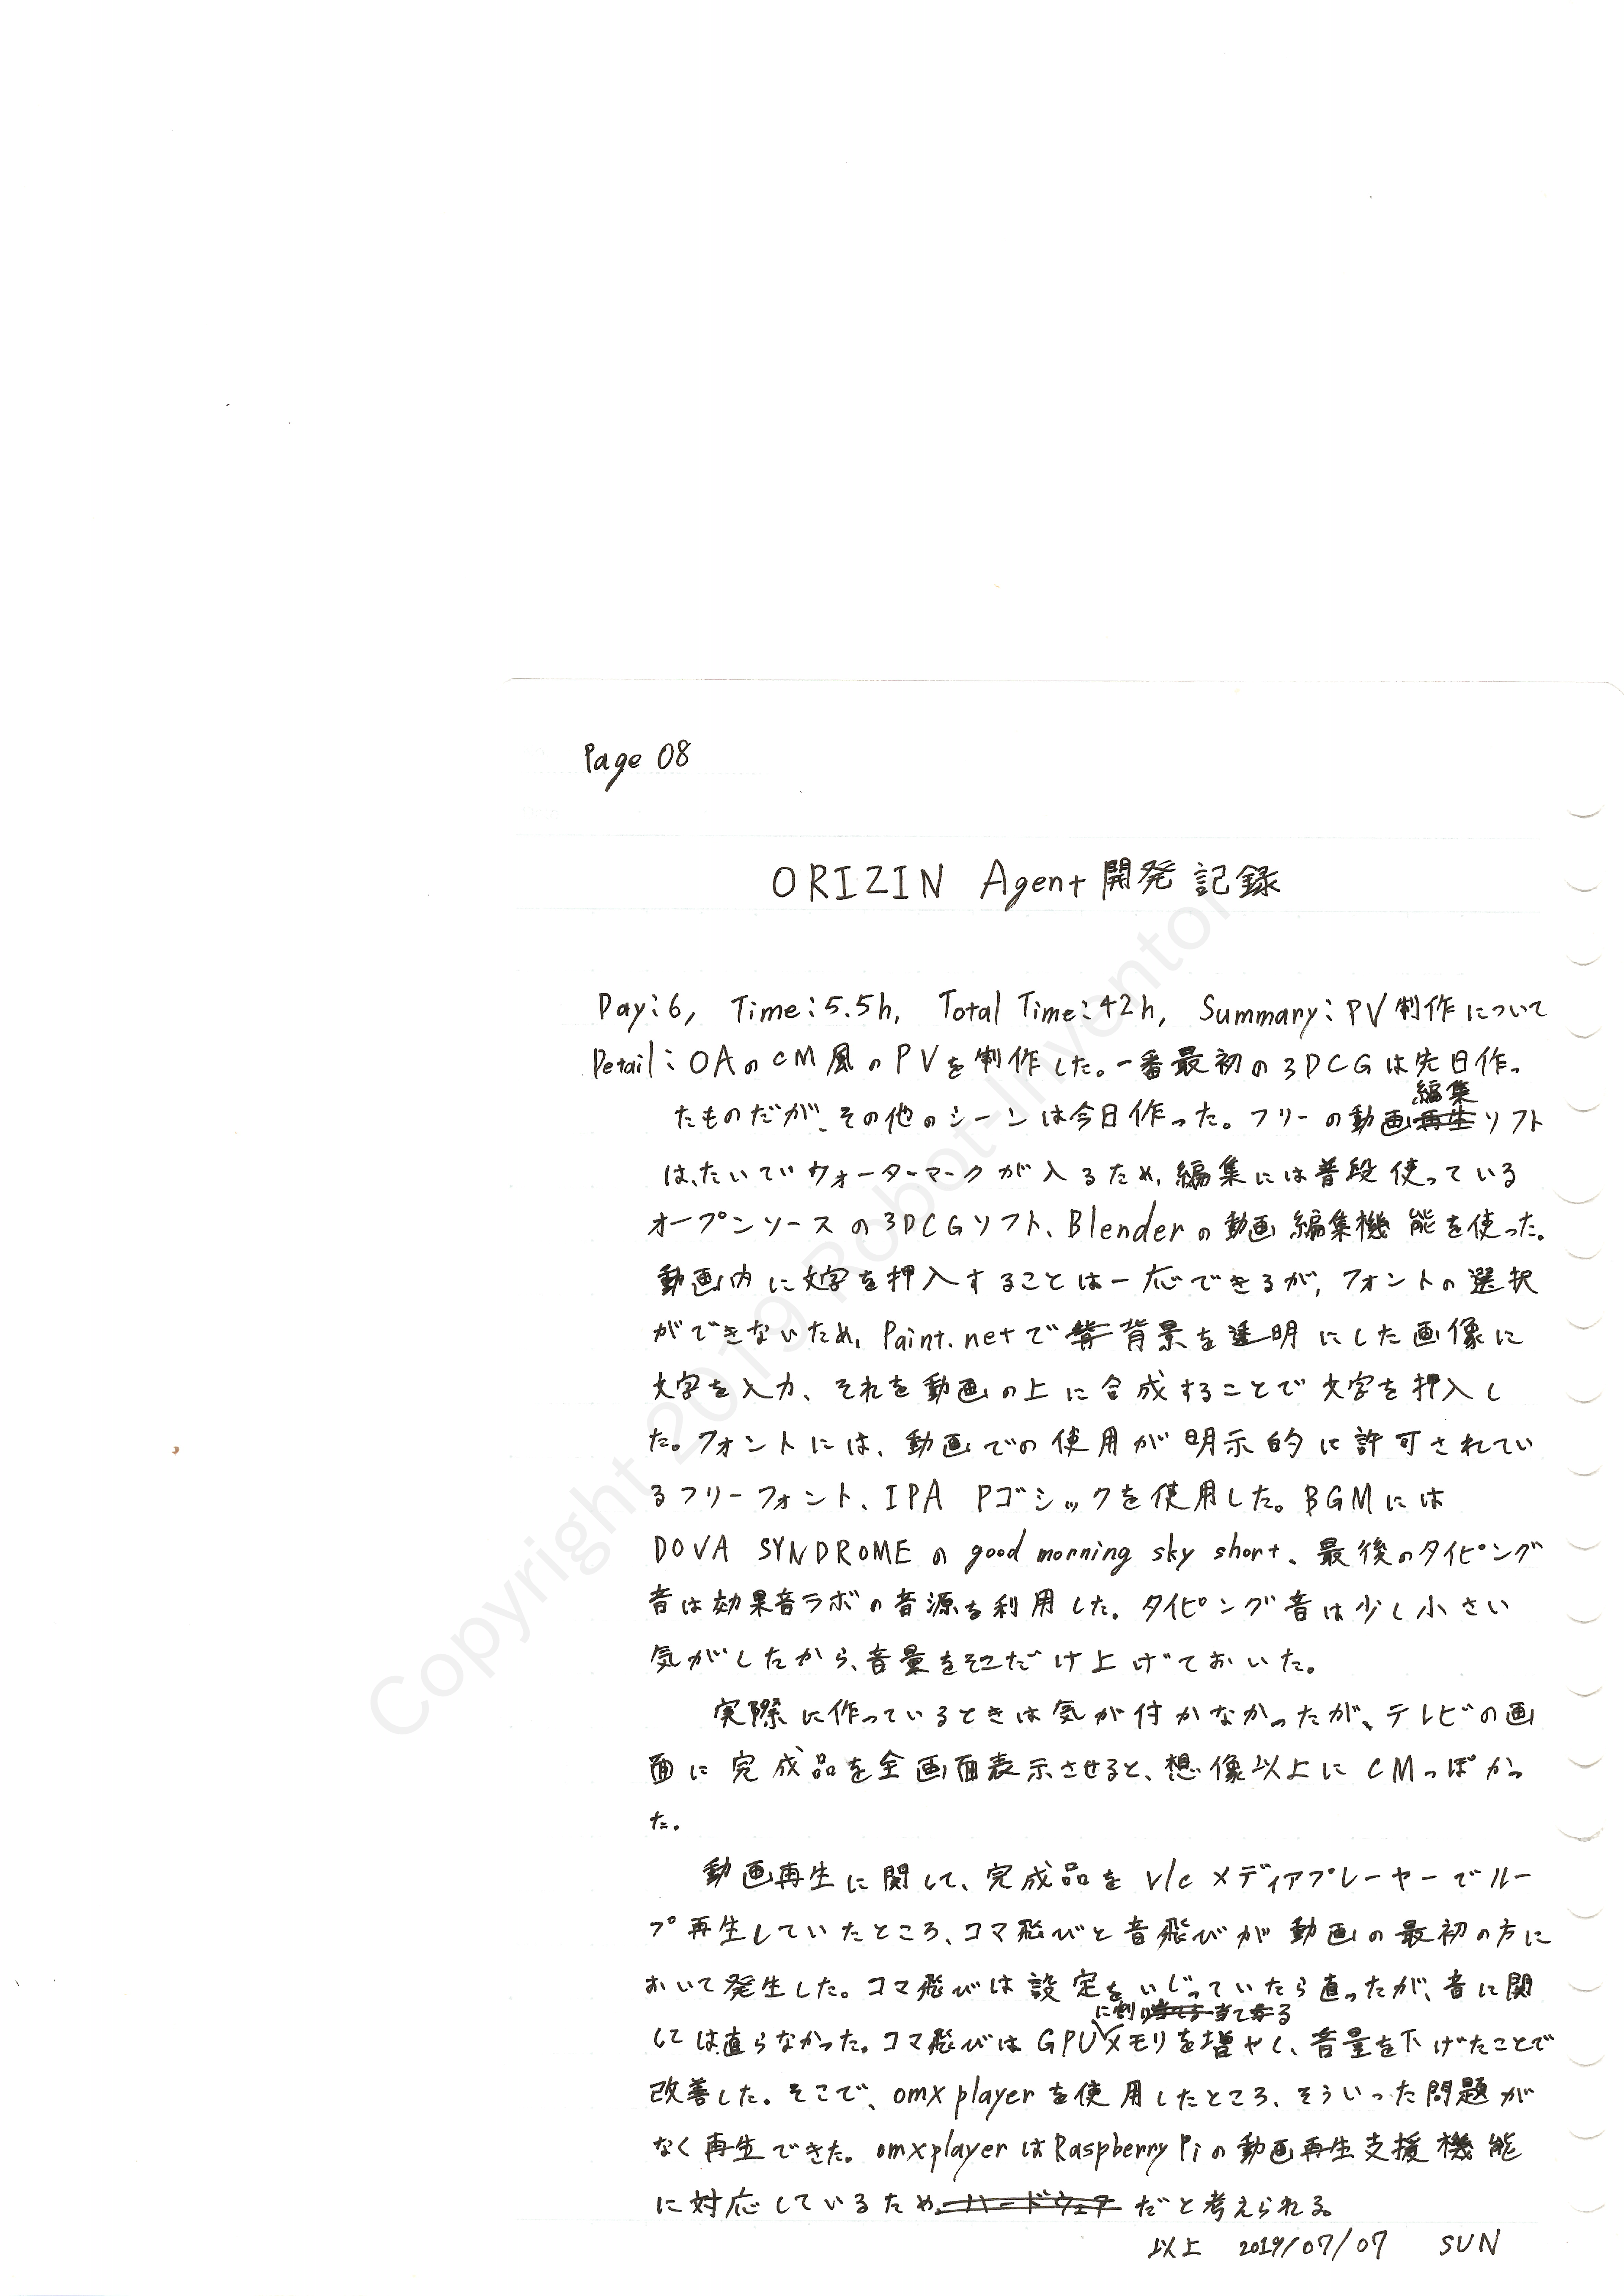 Page 08
ORIZIN Agent 開発記録
Day:6, Time:5.5h, Total Time:42h, Summary:PV制作について
Detail:OAのCM風のPVを制作した。一番最初の3DCGは先日作っ
編集
たものだが、その他のシーンは今日作った。フリーの動画再生ソフト
は、たいていウォーターマークが入るため、編集には普段使っている
オープンソースの3DCGソフト、Blenderの動画編集機能を使った。
動画内に文字を押入することは一応できるが、フォントの選択
ができないため、Paint.netで背景を透明にした画像に
文字を入力、それを動画の上に合成することで文字を押入し
た。フォントには、動画での使用が明示的に許可されてい
るフリーフォント、IPA Pゴシックを使用した。BGMには
DOVA SYNDROMEのgood morning sky short、最後のタイピング
音は効果音ラボの音源を利用した。タイピング音は少し小さい
気がしたから、音量をそこだけ上げておいた。
実際に作っているときは気が付かなかったが、テレビの画
面に完成品を全画面表示させると、想像以上にCMっぽかっ
た。
動画再生に関して、完成品をvlcメディアプレーヤーでルー
プ再生していたところ、コマ飛びと音飛びが動画の最初の方に
おいて発生した。コマ飛びは設定をいじっていたら直ったが、音に関
に割り当てる
しては直らなかった。コマ飛びはGPUメモリを増やし、音量を下げたことで
改善した。そこで、omxplayerを使用したところ、そういった問題が
なく再生できた。omxplayerはRaspberry Piの動画再生支援機能
に対応しているため、ハードウェアだと考えられる。
以上 2019/07/07 SUN
Copyright 2019 Robot-Inventor